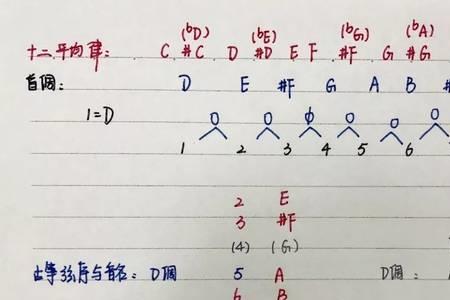 (ᵇD) (ᵇE) (ᵇG) (ᵇA)
十二平均律: C #C D #D E F #F G #G
音调: D E #F G A B
1=D
1 2 3 4 5 6
2 E
3 #F
(4) (G)
古筝弦序与音名: D调 5 A D调:
6 B